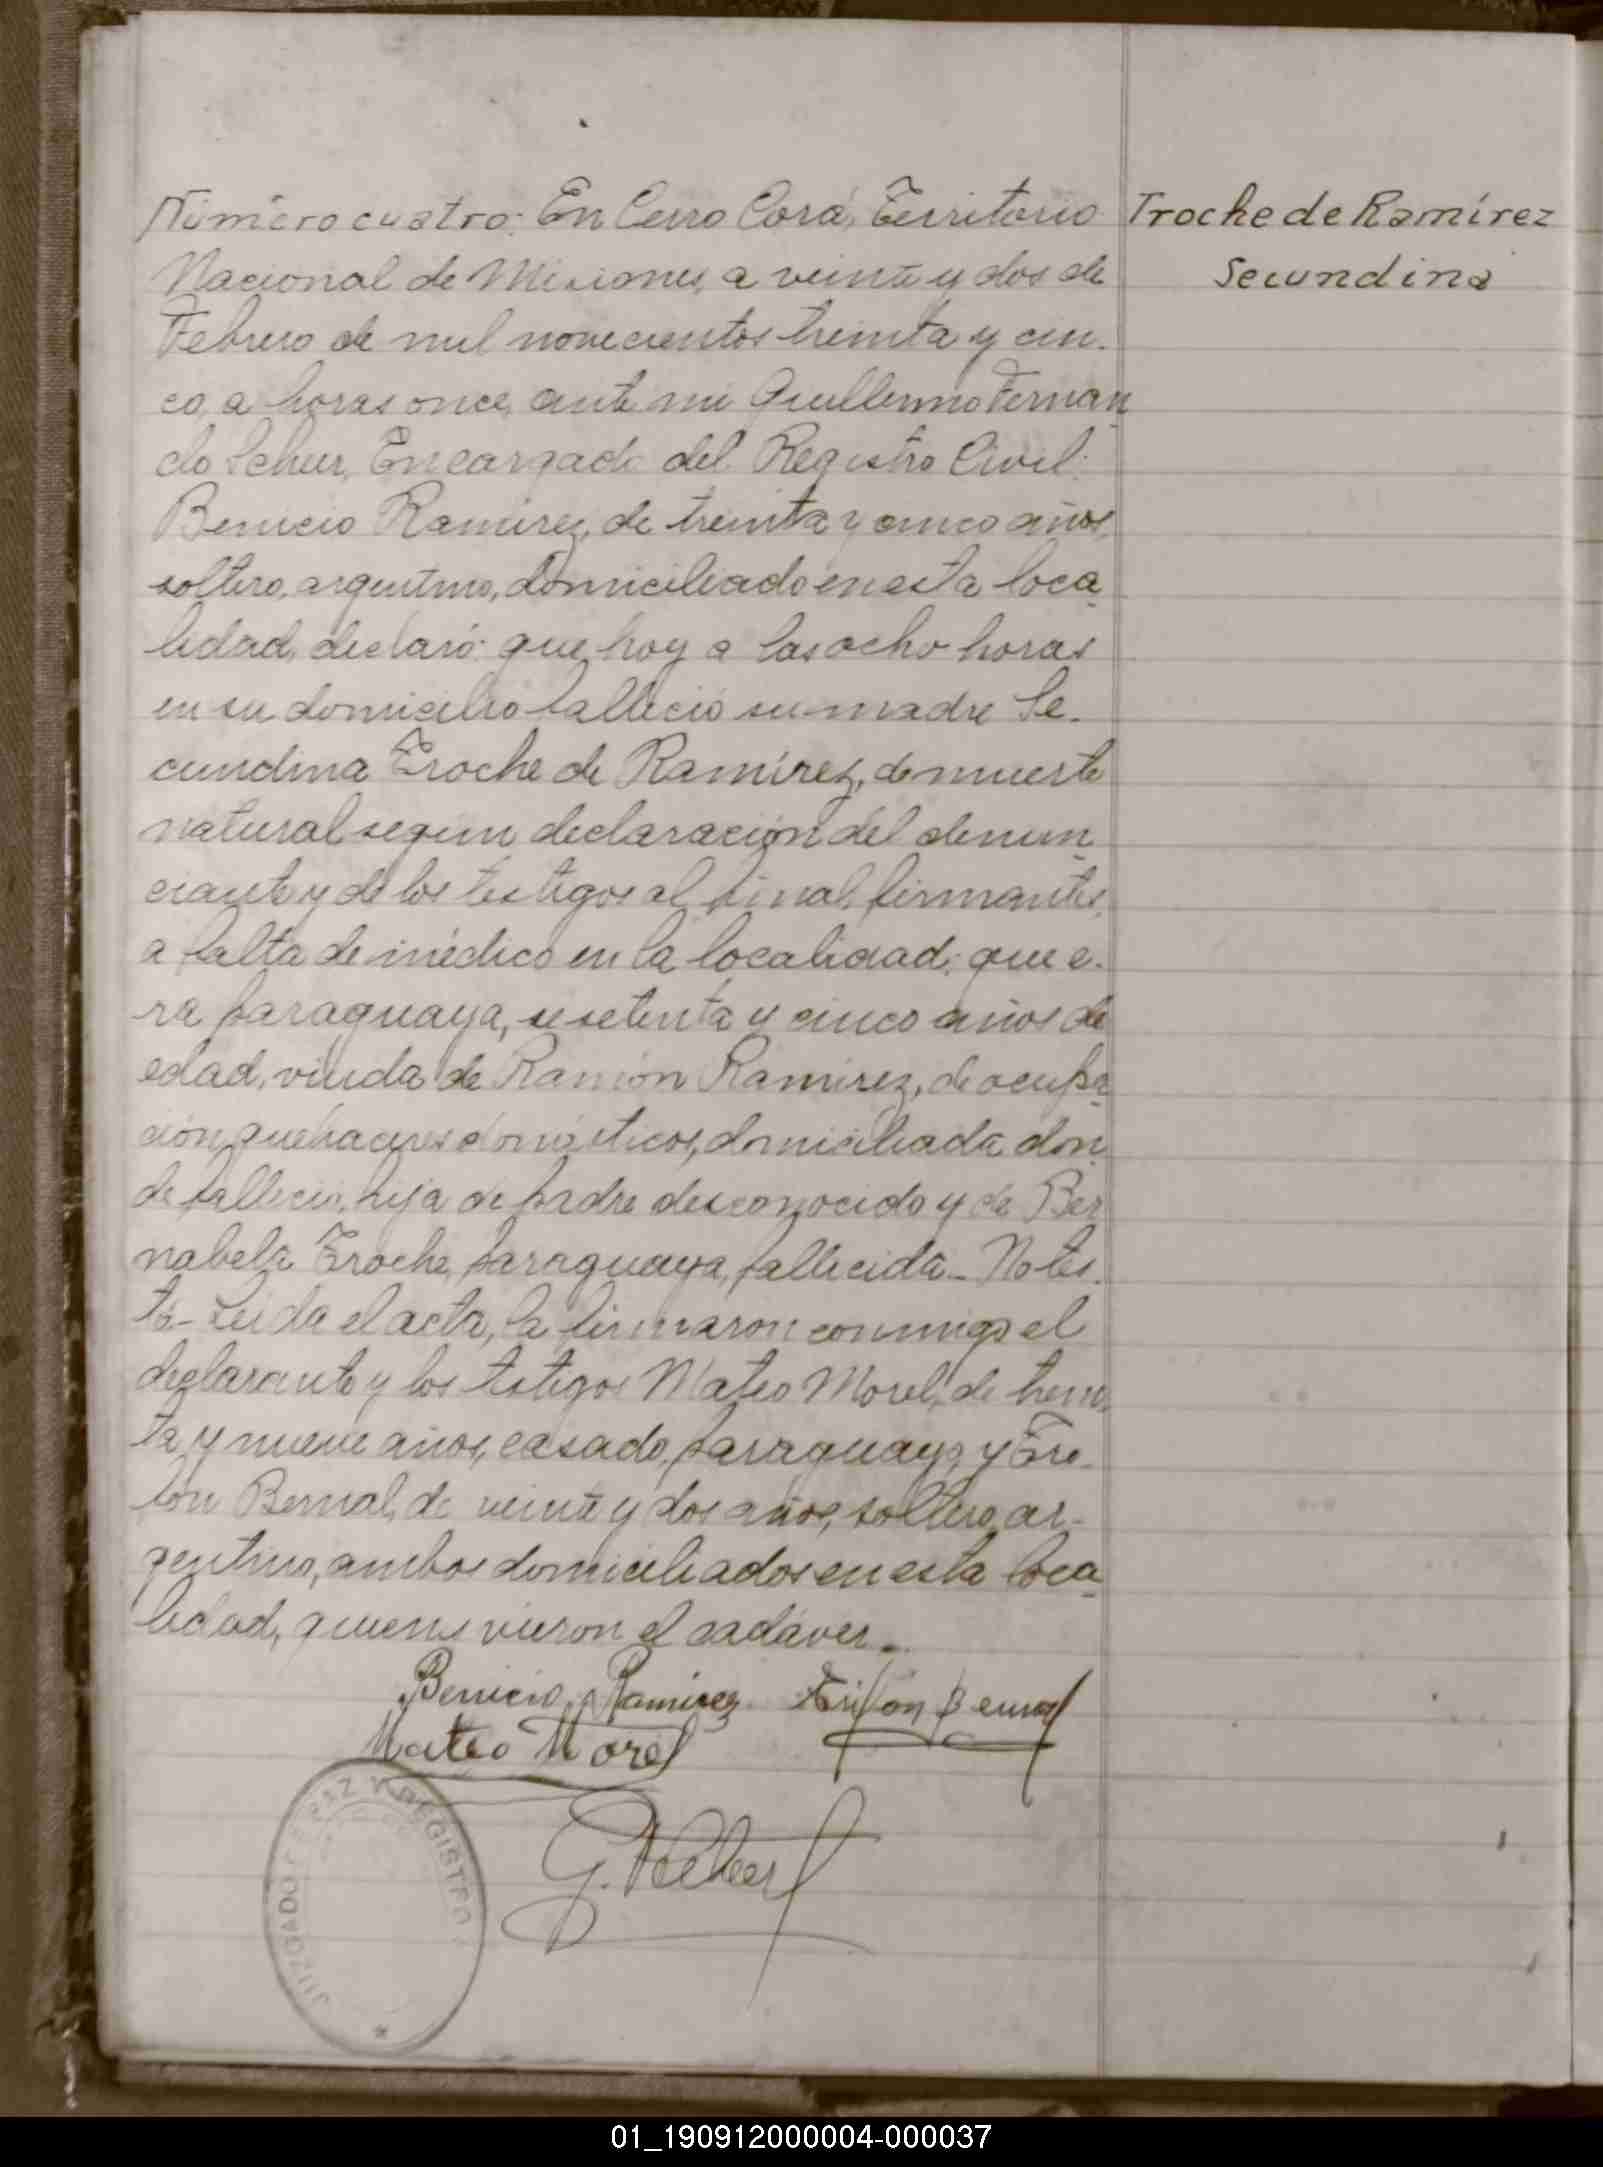 Número cuatro: En Cerro Corá, Territorio
Nacional de Misiones, a veinte y dos de
Febrero de mil novecientos treinta y cin-
co, a horas once, ante mi Guillermo Fernan
do Scheer, Encargado del Registro Civil:
Benicio Ramírez, de treinta y cinco años,
soltero, argentino, domiciliado en esta loca
lidad, declaró: que hoy a las ocho horas
en su domicilio falleció su madre Se-
cundina Troche de Ramírez, de muerte
natural según declaración del denun
ciante y de los testigos al final firmantes,
a falta de médico en la localidad; que e-
ra paraguaya, de setenta y cinco años de
edad, viuda de Ramón Ramírez, de ocupa
ción quehaceres domésticos, domiciliada don
de falleció, hija de padre desconocido y de Ber
nabela Troche, paraguaya, fallecida - No tes
tó - Leida el acta, la firmaron conmigo el
declarante y los testigos Mateo Morel, de trein
ta y nueve años, casado, paraguayo, y Tri-
fón Bernal, de veinte y dos años, soltero, ar-
gentino, ambos domiciliados en esta loca
lidad, quienes vieron el cadáver -
Troche de Ramírez
Secundina
Benicio Ramirez Trifon Bernal
Mateo Morel
G. Scheer
JUZGADO DE PAZ Y REGISTRO
01_190912000004-000037